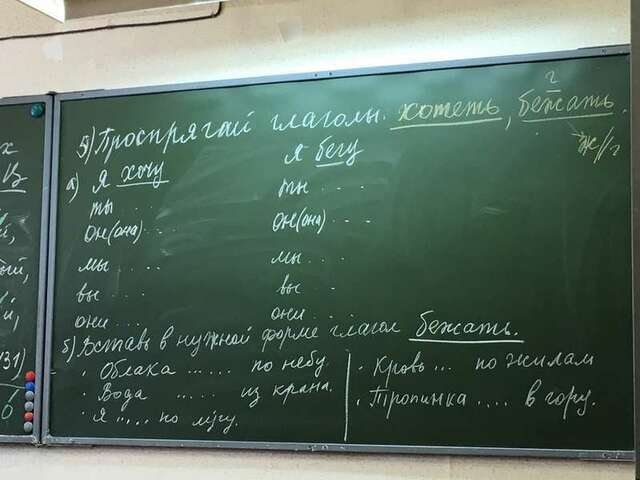 5) Проспрягай глаголы: хотеть, бежать.
г
ж//г
а) я хочу
ты . . .
он(она) . . .
мы . . . .
вы . . . .
они . . . .
я бегу
ты . . .
он(она) . . .
мы . . .
вы . . .
они . . .
б) Вставь в нужной форме глагол бежать.
· Облака ...... по небу
· Вода ..... из крана.
· Я ..... по лугу.
· Кровь ... по жилам
· Тропинка .... в гору.
131)